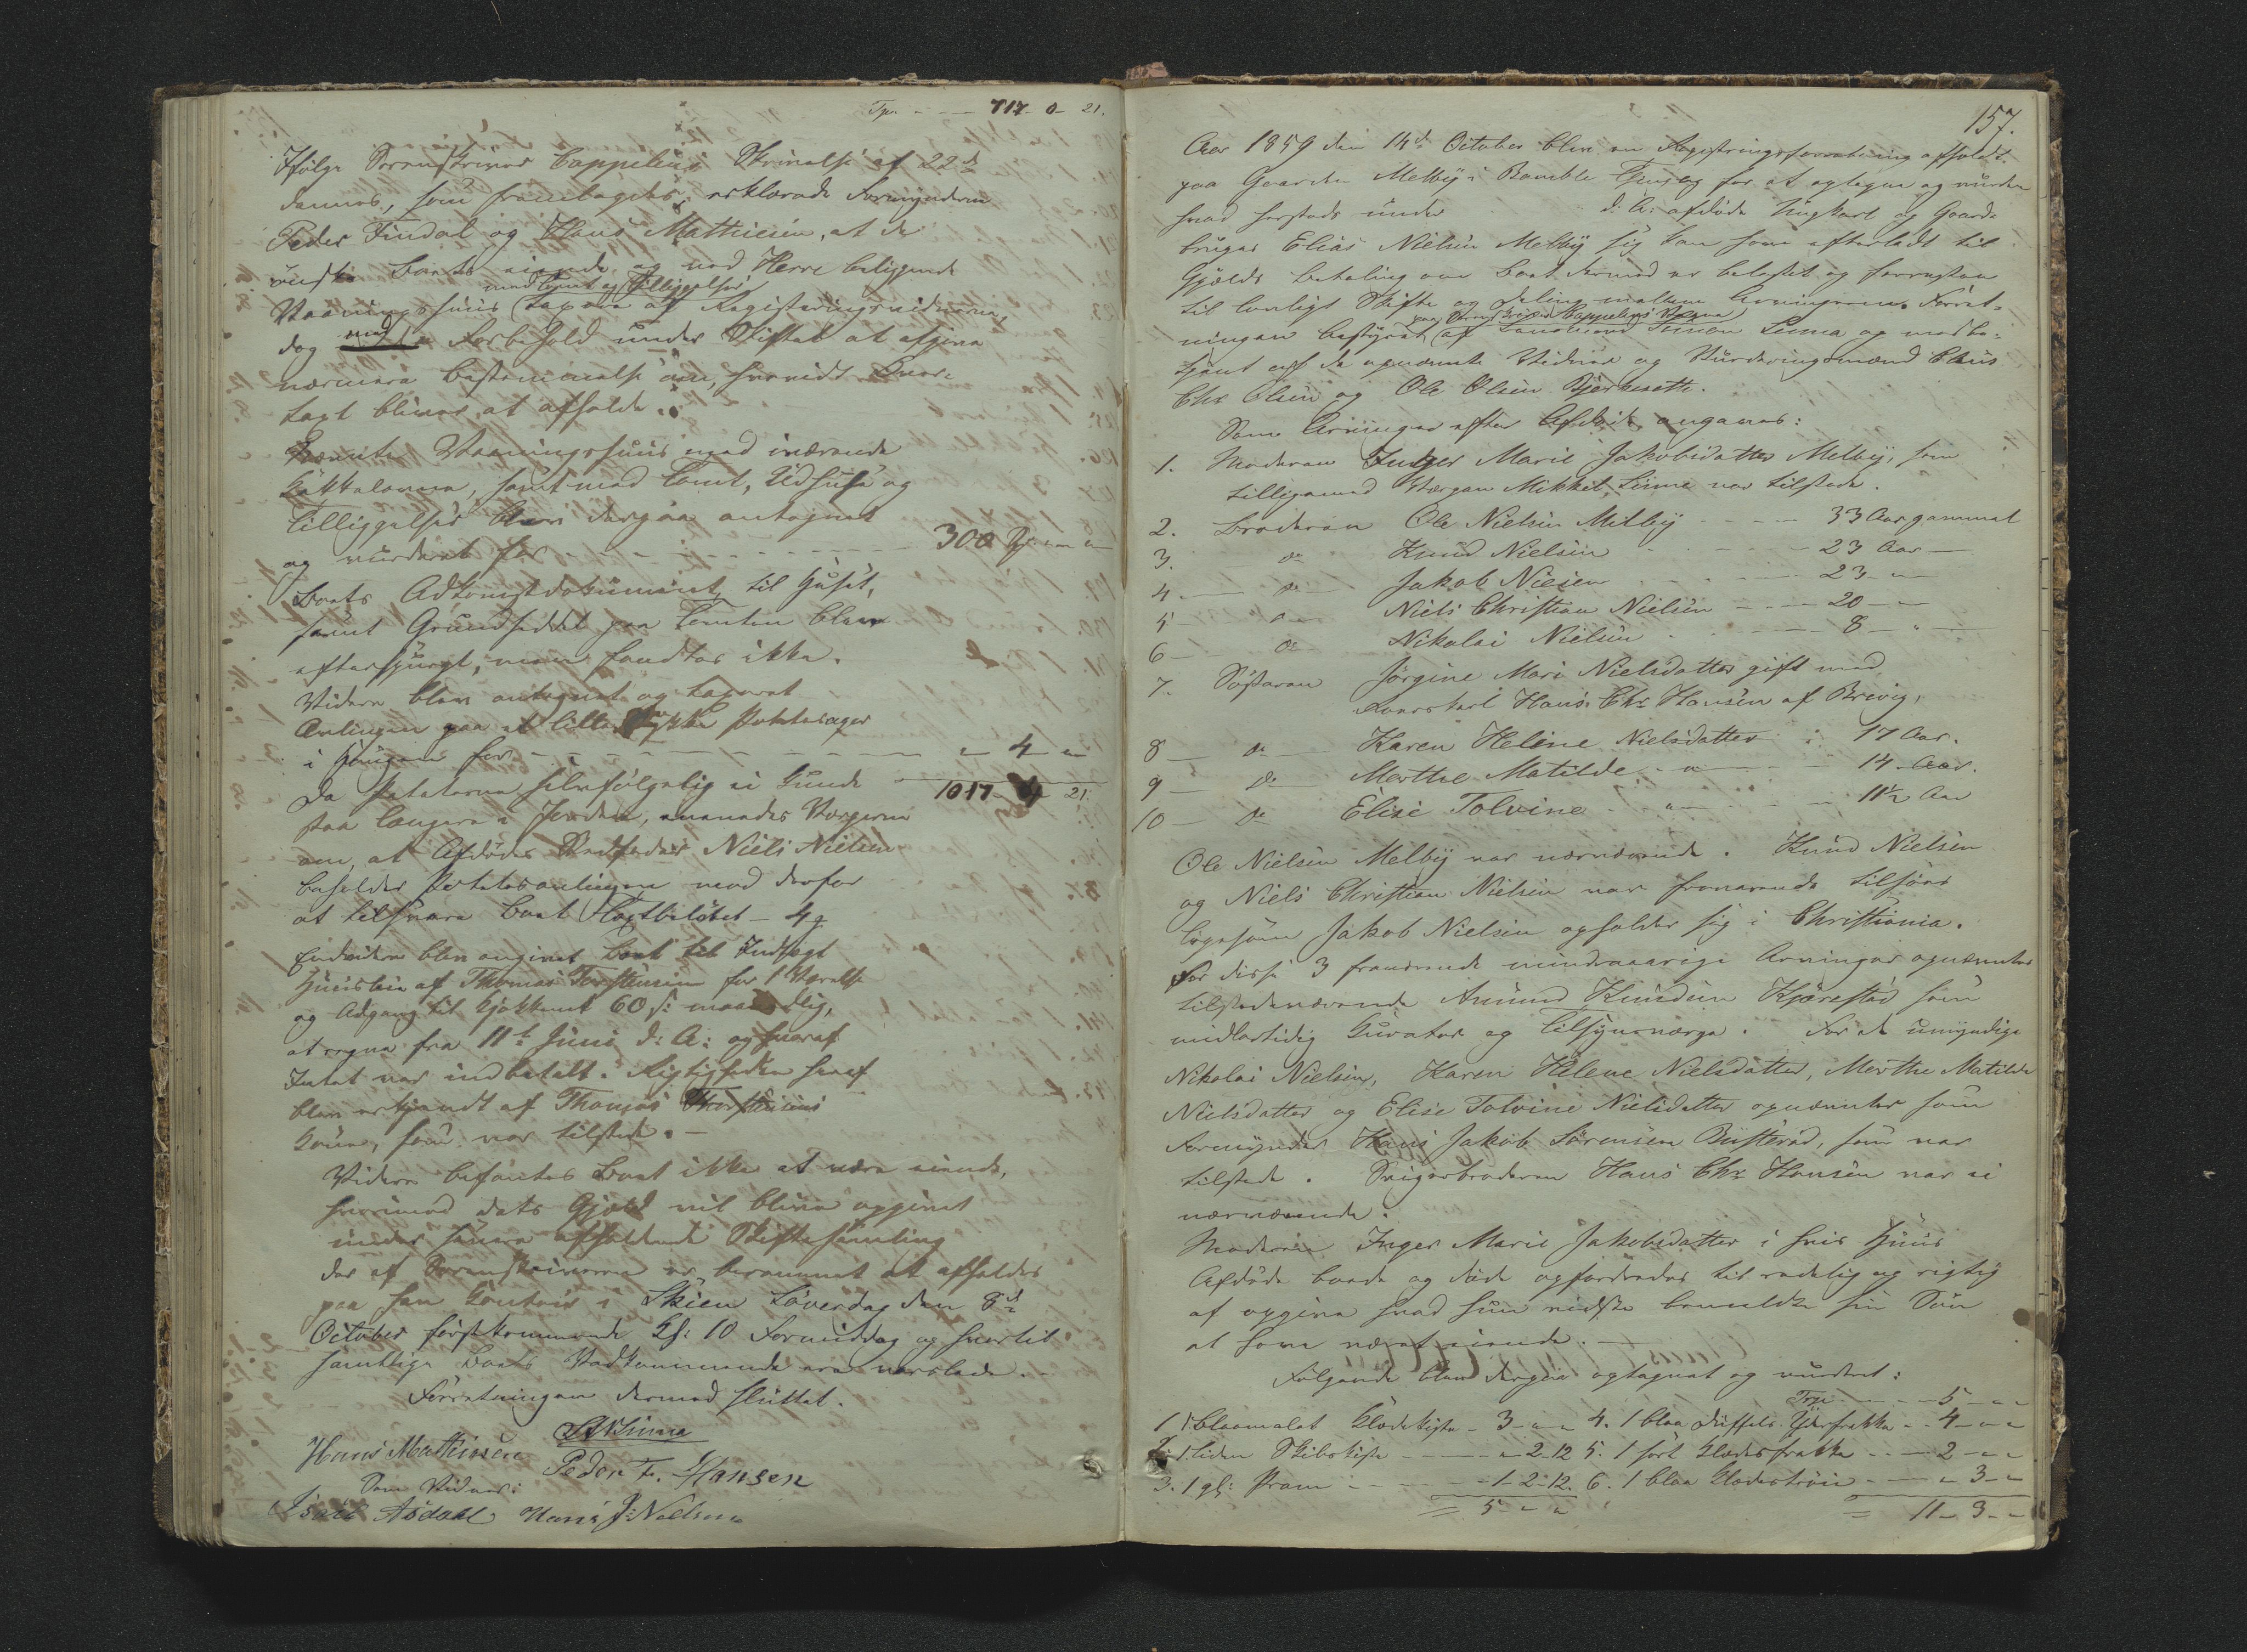 Tpr - - - 717 - 0 - 21.
Ifølge Sorenskriver Cappelens Skrivelse af 22de
dennes, som fremlagdes, erklærede Formynderne
Peder Findal og Hans Mathiesen, at de
ønske Boets eiende og ved Herre beliggende
med Tomt og Tilliggelser
Vaaningshuus taxeret af Registreringsvidnerne,
dog med Forbehold under Skiftet at afgive
nærmere Bestemmelse om, hvorvidt
Taxt bliver at afholde.
Nævnte Vaaningshuus med iværende
Kakkelovne, samt med Tomt, Udhuse og
Tilliggelser blev derpaa antegnet
og vurderet for - - - - - 300 Spd " "
Boets Adkomstdokument til Huset,
samt Grundseddel paa Tomten blev
efterspurgt, men fandtes ikke.
Videre blev antegnet og taxeret
Avlingen paa et lidet Stykke Potetesager
i Haugen for - - - - - - " 4 "
1017 - 4 - 21.
Da Poteterne selvfølgelig ei kunde
staa længere i Jorden, eenedes Vergerne
om, at Afdødes Stedfader Niels Nielsen
beholder Potetesavlingen mod derfor
at tilsvare Boet Taxtbeløbet - 4
Endvidere blev angivet Boet til Indtægt
Huusleie af Thomas Torstensen for 1 Værelse
og Adgang til Kjøkkenet 60 s: maanedlig,
at regne fra 11te Juni d: A: og hvoraf
Intet var indbetalt. Rigtigheden heraf
blev erkjendt af Thomas Thorstensens
Kone, som var tilstede. -
Videre befandtes Boet ikke at være eiende,
hvorimod dets Gjæld vil blive opgivet
under senere afholdende Skiftesamling
der af Sorenskriveren er berammet at afholdes
paa hans Contoir i Skien Løverdag den 8de
October førstkommende Kl: 10 Formiddag og hvortil
samtlige Boets Vedkommende ere varslede. -
Forretningen dermed sluttet.
Hans Mathiesen
Peder F. Hansen
Som Vidner:
Isack Asdahl Hans J: Nielsen
157.
Aar 1859 den 14de October blev en Registreringsforretning afholdt
paa Gaarden Melby i Bamble for at optegne og vurdere
hvad sidstafvigte d: A: afdøde Ungkarl og Gaard-
bruger Elias Nielsen Melby sig kan have efterladt til
Gjælds Betaling om Boet dermed er belastet og forresten
til lovligt Skifte og Deling mellem Arvingerne. Forret-
paa Sorenskriver Cappelens Vegne
ningen bestyret af Lensmand Simon Simmen og med be-
tjent af de opnævnte Vidner og Vurderingsmænd Claus
Chr Olsen og Ole Olsen Bjerkeseth.
Som Arvinger efter Afdøde angaves:
1. Moderen Inger Marie Jakobsdatter Melby, som
tilligemed Værgen Mikkel Simmen var tilstede.
2. Broderen Ole Nielsen Melby - - - 33 Aar gammel
3. do Knud Nielsen - - - 23 Aar -
4. - do - Jakob Nielsen - - - 23 - " -
5 - do - Niels Christian Nielsen - - - 20 - -
6 - do Nikolai Nielsen - - - 8 - " -
7. Søsteren Jørgine Mari Nielsdatter gift med
Hans Chr Hansen af Brevig,
8 - do - Karen Helene Nielsdatter i 17 Aar.
9 - do - Merthe Matilde - " - - 14 - Aar.
10 - do Elise Tolvine - " - - 11½ Aar
Ole Nielsen Melby var nærværende. Knud Nielsen
og Niels Christian Nielsen var fraværende tilsøes
ligesom Jakob Nielsen opholder sig i Christiania.
For disse 3 fraværende mindreaarige Arvinger opnævntes
tilstedeværende Amund Knudsen Kjærestad som
midlertidig Curator og Tilsynsværge. For de umyndige
Nikolai Nielsen, Karen Helene Nielsdatter, Merthe Matilde
Nielsdatter og Elise Tolvine Nielsdatter opnævntes som
Formynder Hans Jakob Sørensen Busterød, som var
tilstede. Svigerbroderen Hans Chr Hansen var ei
nærværende.
Moderen Inger Marie Jakobsdatter i hvis Huus
Afdøde boede og døde opfordredes til redelig og rigtig
at opgive hvad hun vidste bemeldte sin Søn
at have været eiende. -
Følgende blev derpaa optegnet og vurderet:
1. 1 blaamalet Klædekiste - 3 - " - "
2. 1 liden Skibskiste - - - " - 2 - 12
3. 1 gl: Pram - - - 1 - 2 - 12.
= 5 - " - "
Trpr - - - 5 - " - "
4. 1 blaa Duffels Yderfrakke - 4 - " - "
5. 1 sort Klædesfrakke - - - 2 - " - "
6. 1 blaa Klædestrøie - - - " - 3 - "
= 11 - 3 - "